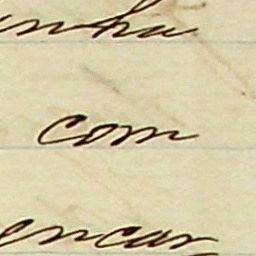 inha
com
encar